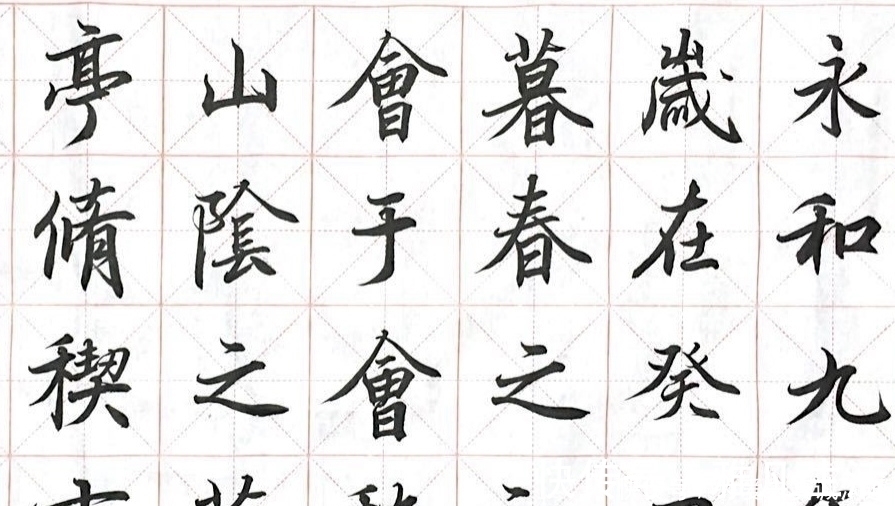 永和九
歲在癸
暮春之
會于會
山陰之
亭脩稧